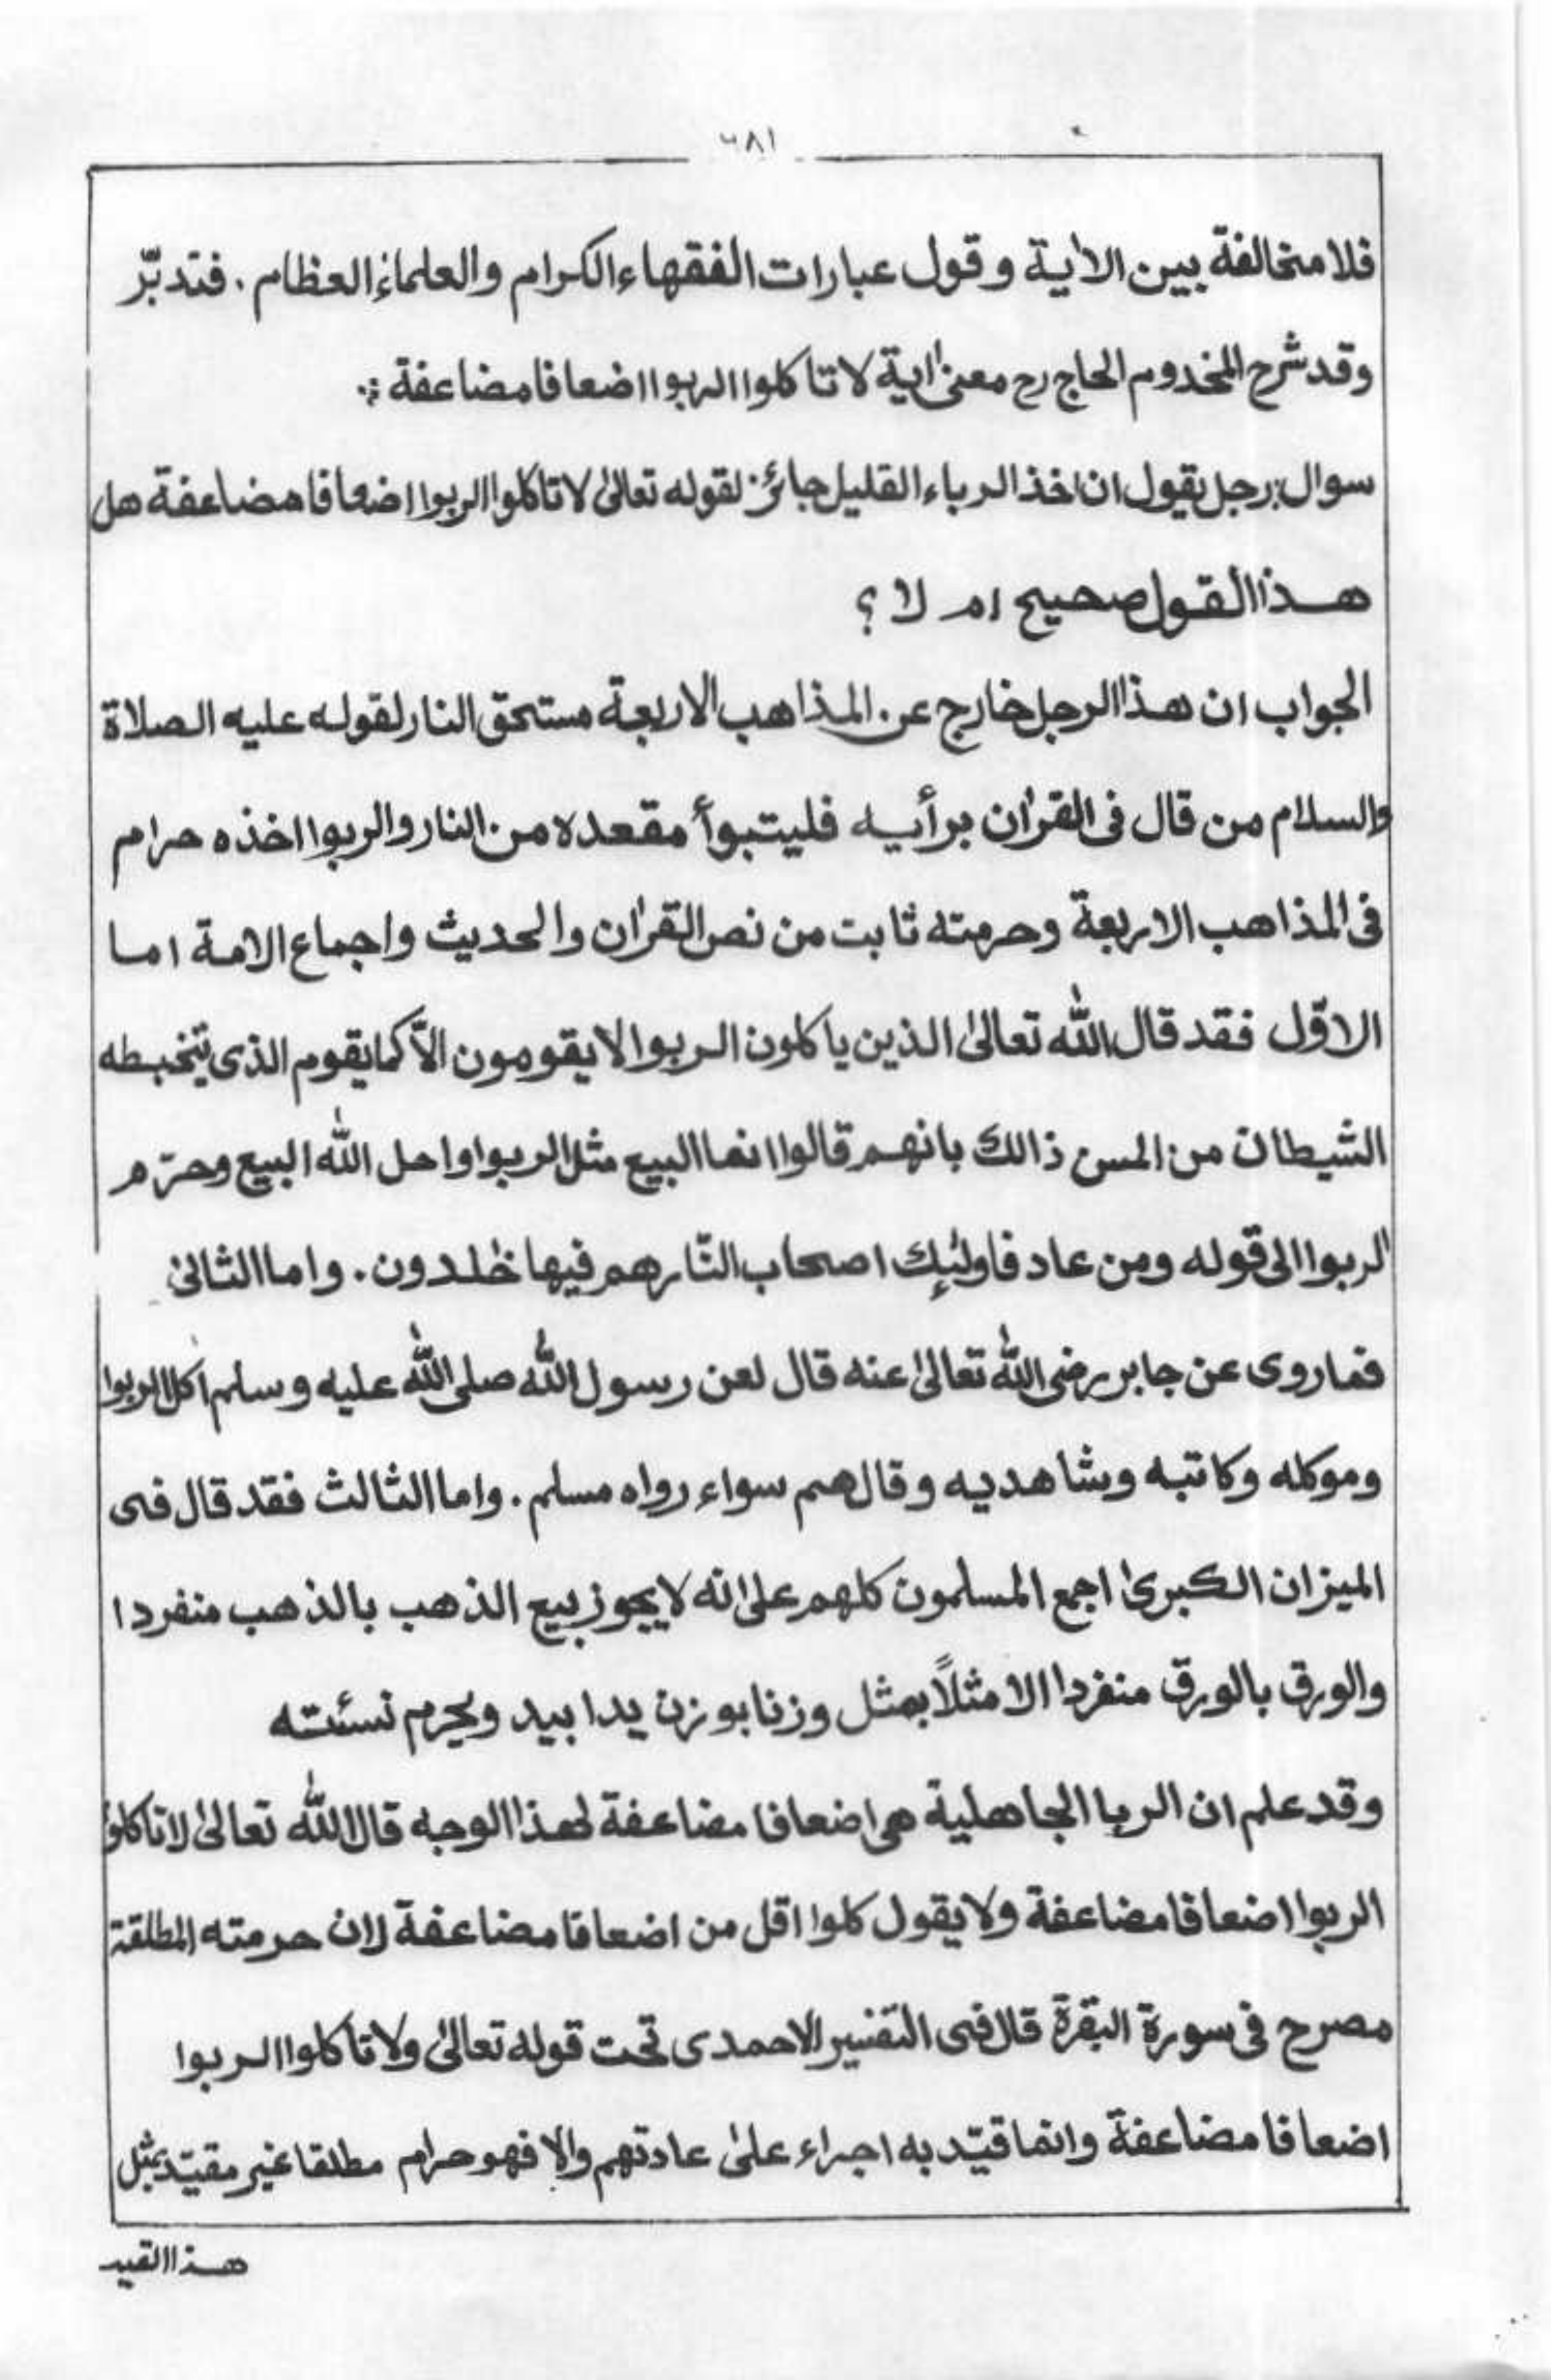 ٦٨١
فلا مخالفة بين الاٰية و قول عبارات الفقهاء الكرام والعلماء العظام . فتدبّر
وقد شرح المخدوم الحاج رح معنىٰ اٰية لا تاكلوا الربوا اضعافا مضاعفة :.
سوال : رجل يقول ان اخذ الرباء القليل جائز. لقوله تعالىٰ لا تاكلوا الربوا اضعافا مضاعفة هل
هذا القول صحيح ام لا ؟
الجواب ان هذا الرجل خارج عن المذاهب الاربعة مستحق النار لقوله عليه الصلاة
والسلام من قال فى القراٰن برأيه فليتبوأ مقعده من النار والربوا اخذه حرام
فى المذاهب الاربعة وحرمته ثابت من نص القراٰن والحديث واجماع الامة اما
الاوّل فقد قال الله تعالىٰ الذين ياكلون الربوا لا يقومون الاّ كما يقوم الذى يتخبطه
الشيطان من المس ذالك بانهم قالوا انما البيع مثل الربوا واحل الله البيع وحرّم
الربوا الى قوله ومن عاد فاولٰئك اصحاب النّار هم فيها خٰلدون . واما الثانى
فما روى عن جابر رضى الله تعالىٰ عنه قال لعن رسول الله صلى الله عليه وسلم اٰكل الربوا
وموكله وكاتبه وشاهديه وقال هم سواء رواه مسلم . واما الثالث فقد قال فى
الميزان الكبرىٰ اجمع المسلمون كلهم علىٰ انه لا يجوز بيع الذهب بالذهب منفردا
والورق بالورق منفردا الا مثلاً بمثل وزنا بوزن يدا بيد ويحرم نسئته
وقد علم ان الربا الجاهلية هى اضعافا مضاعفة لهذا الوجه قال الله تعالىٰ لا تاكلوا
الربوا اضعافا مضاعفة ولا يقول كلوا اقل من اضعافا مضاعفة لان حرمته المطلقة
مصرح فى سورة البقرة قال فى التفسير الاحمدى تحت قوله تعالىٰ ولا تأكلوا الربوا
اضعافا مضاعفة وانما قيّد به اجراء علىٰ عادتهم والا فهو حرام مطلقا غير مقيّد بمثل
هذا القيد